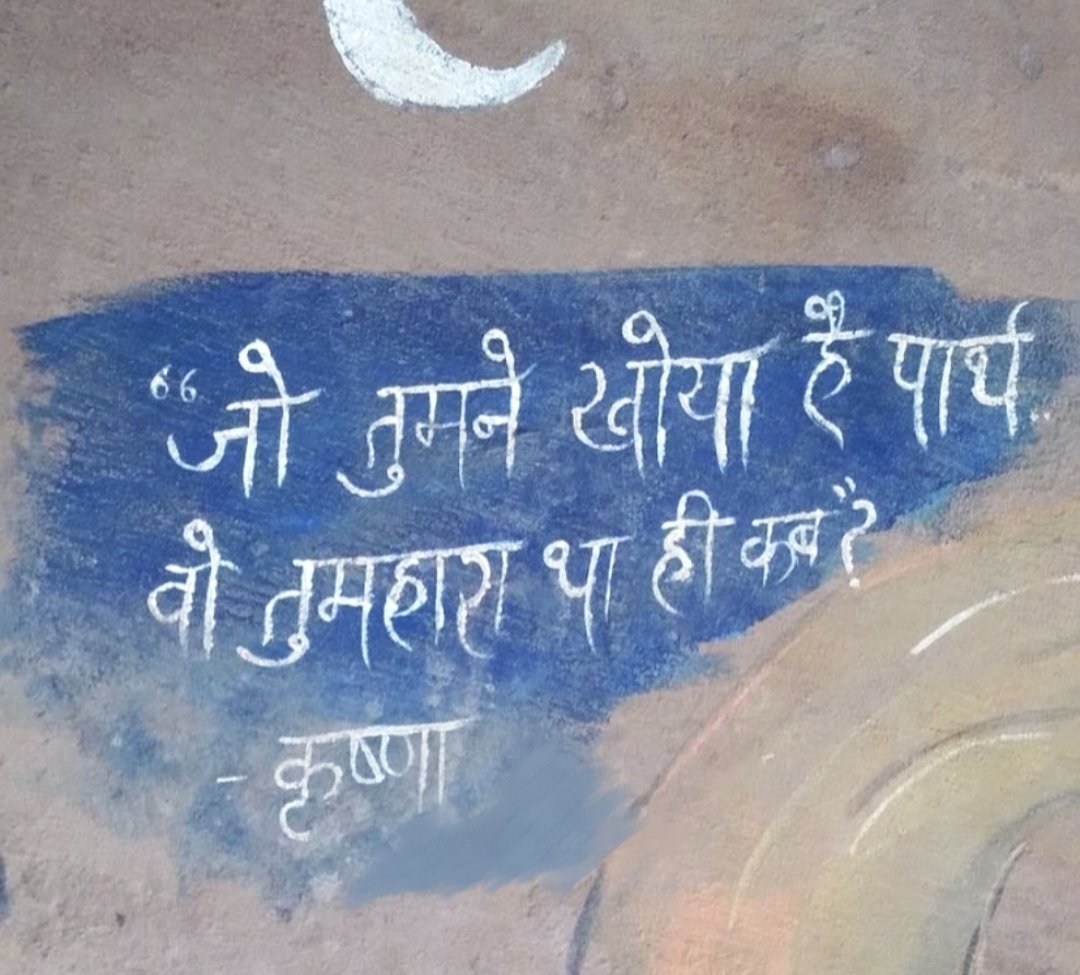 “जो तुमने खोया है पार्थ..
वो तुमहारा था ही कब”?
- कृष्णा